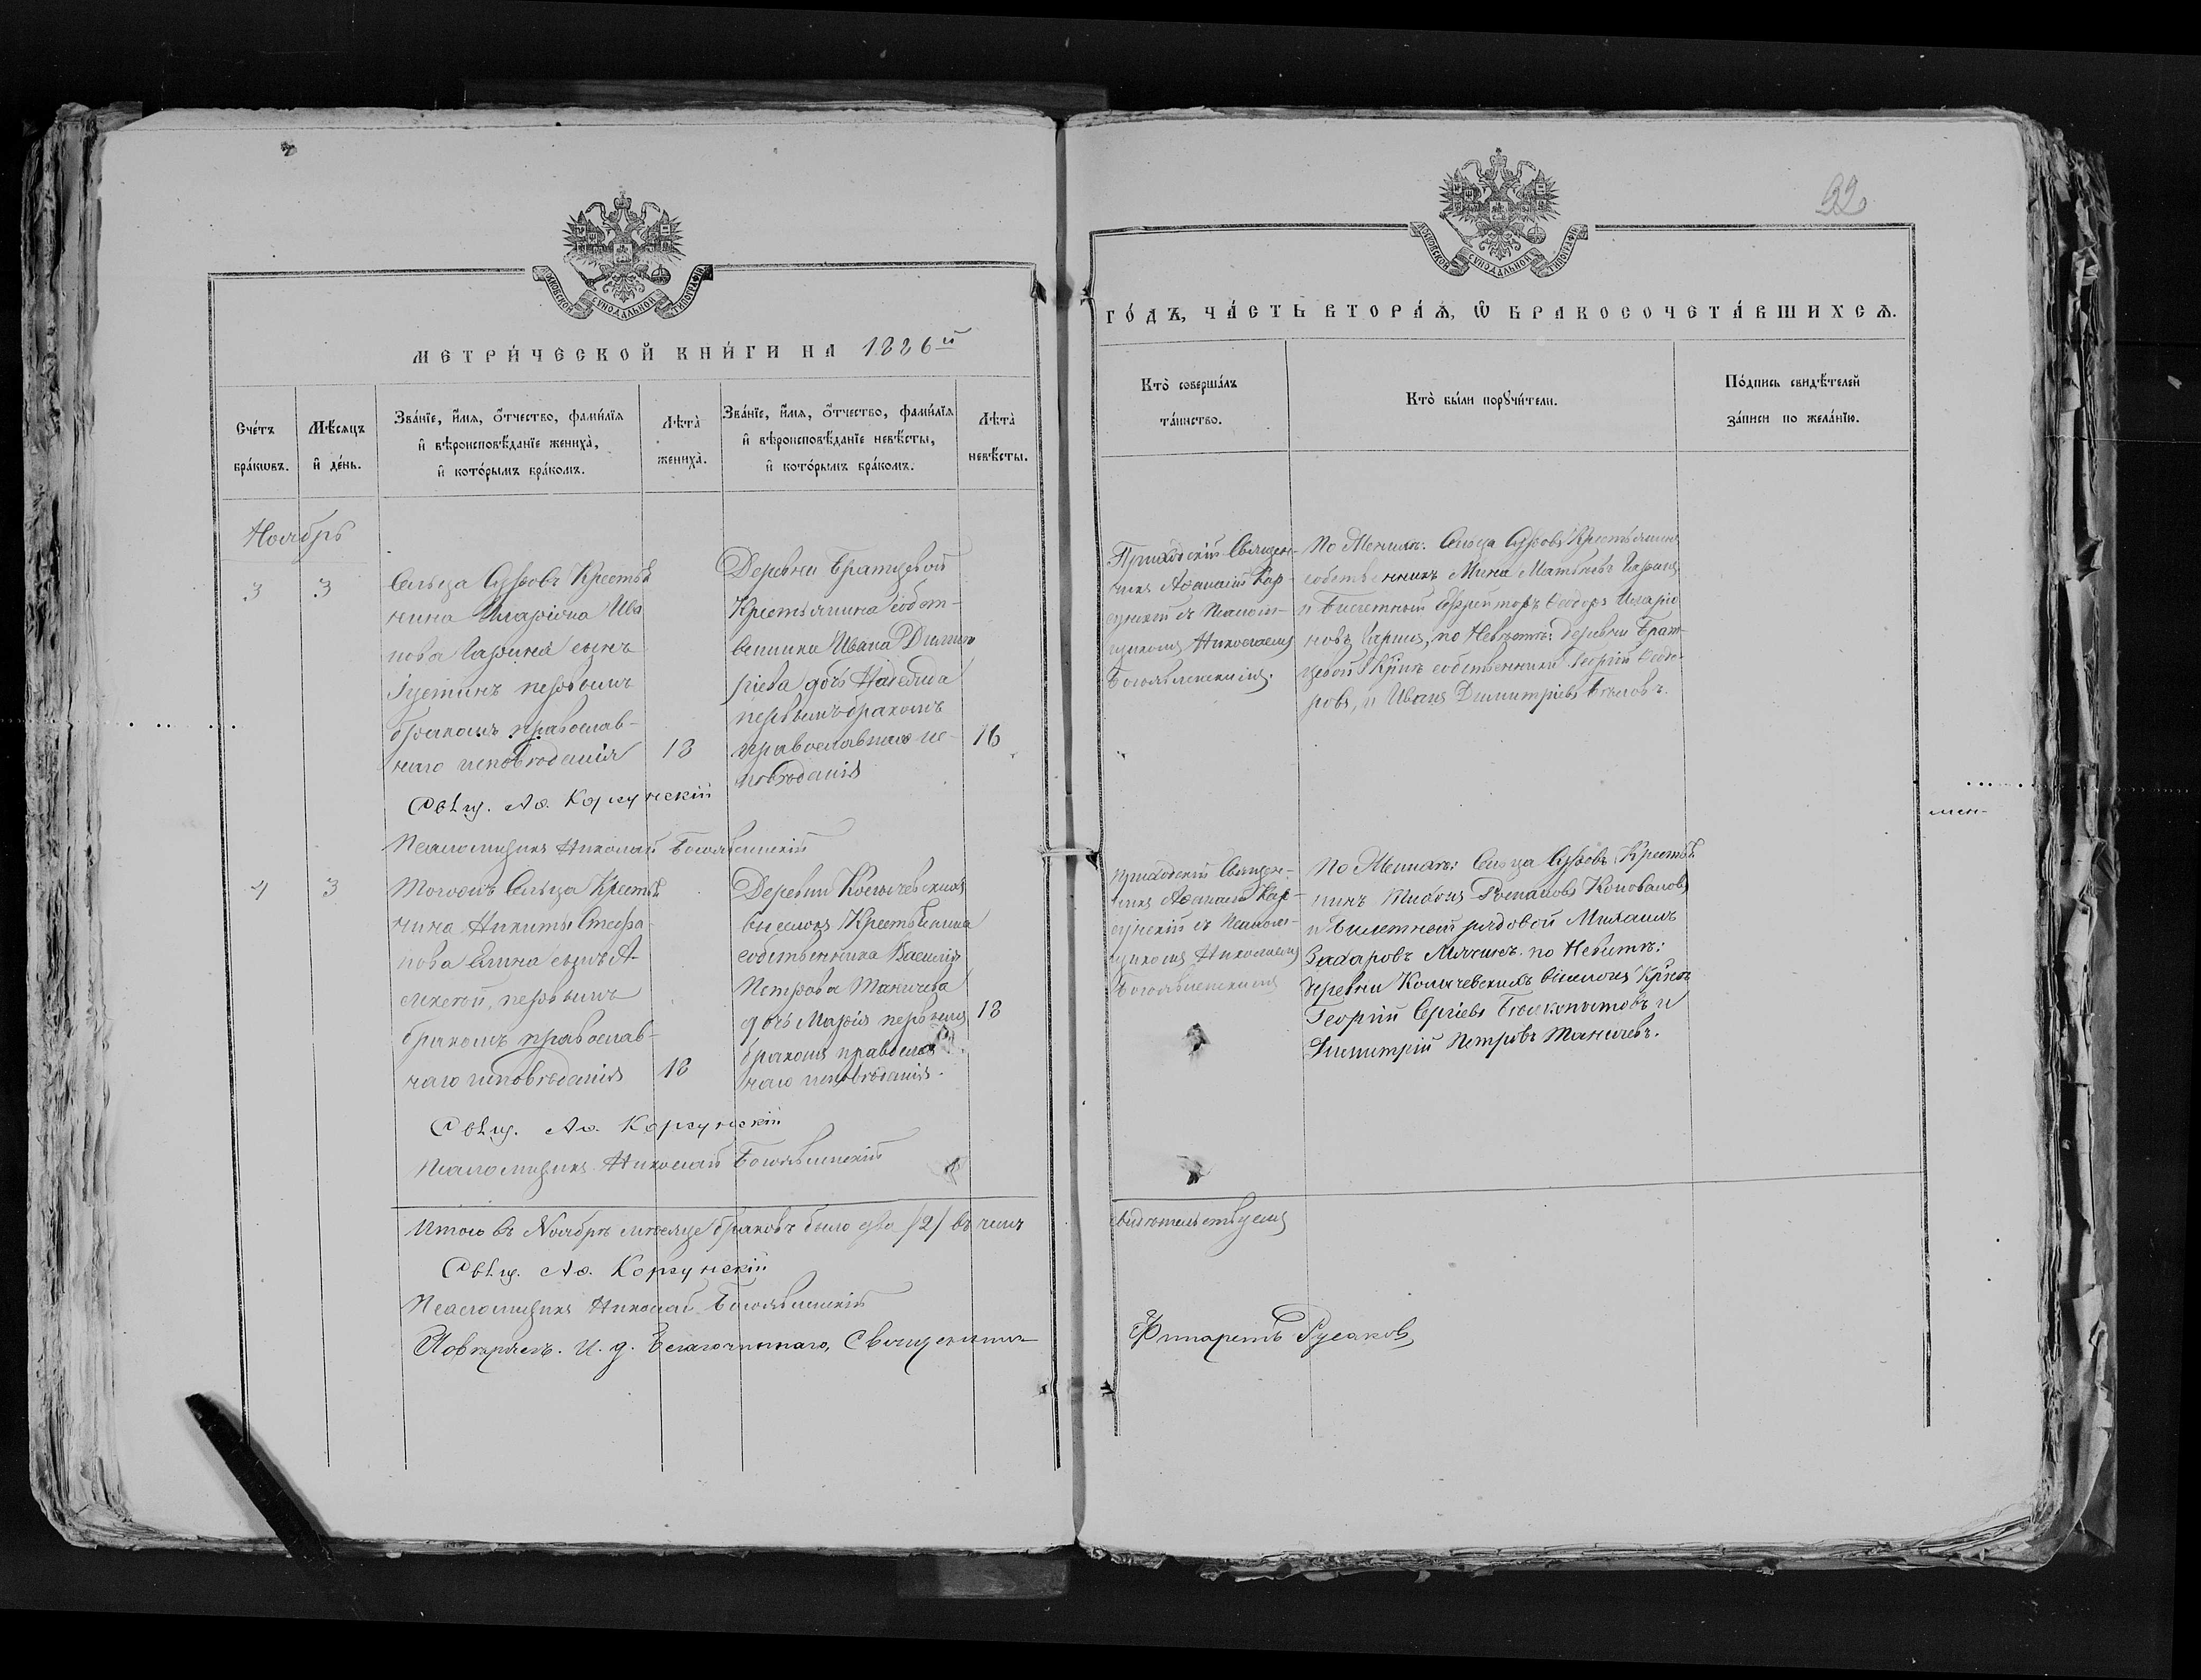 МОСКОВСКОЙ СѴНОДАЛЬНОЙ ТИПОГРАФІИ
МЕТРИ́ЧЕСКОЙ КНИ́ГИ НА 1886й
Сче́тъ бра́кѡвъ.
Мѣ́сяцъ и҆ де́нь.
Зва́нїе, и҆́мѧ, ѻ҆́тчество, фами́лїѧ и҆ вѣроисповѣ́данїе жениха̀, и҆ кото́рымъ бра́комъ.
Лѣта̀ жениха̀.
Зва́нїе, и҆́мѧ, ѻ҆́тчество, фами́лїѧ и҆ вѣроисповѣ́данїе невѣ́сты, и҆ кото́рымъ бра́комъ.
Лѣта̀ невѣ́сты.
Ноябрь
3
3
Сельца Крестья
нина Иларіона Ива
нова Гарина сынъ
Іустинъ первымъ
бракомъ православ-
наго исповѣданія
18
Деревни Братцевой
Крестьянина собст-
венника Ивана Димит
ріева дочь Надежда
первымъ бракомъ
православнаго ис-
повѣданія
16
Свящ. Аѳ. Корсунскій
Псаломщикъ Николай Богоявленскій
4
3
Тогожъ Сельца Крестья
нина Никиты Стефа-
нова сынъ А-
лексѣй, первымъ
бракомъ православ-
наго исповѣданія
18
Деревни
выселокъ Крестьянина
собственника Василія
Петрова Маничева
дочь Марія первымъ
бракомъ православ
наго исповѣданія.
18
Свящ. Аѳ. Корсунскій
Псаломщикъ Николай Богоявленскій
Итого въ Ноябрѣ мѣсяцѣ браковъ было два /2/ въ чемъ
Свящ. Аѳ. Корсунскій
Псаломщикъ Николай Богоявленскій
И. д. Благочиннаго, Священникъ
92
МОСКОВСКОЙ СѴНОДАЛЬНОЙ ТИПОГРАФІИ
ГО́ДЪ, ЧА́СТЬ ВТОРА́Ѧ, Ѽ БРАКОСОЧЕТА́ВШИХСѦ.
Кто̀ соверша́лъ та́инство.
Кто̀ бы́ли порꙋчи́тели.
По́дпись свидѣ́телей за́писи по жела́нїю.
Приходскій Священ-
никъ Аѳанасій Кор-
сунскій съ Псалом-
щикомъ Николаемъ
Богоявленскимъ.
По Женихѣ: Сельца Крестьянинъ
собственникъ Мина Матвѣевъ Гаринъ
и Билетный Ефрейторъ Ѳеодоръ Иларіо
новъ Гаринъ, по Невѣстѣ: деревни Брат-
цевой собственники Георгій Ѳеодо-
ровъ, и Иванъ Димитріевъ
Приходскій Священ-
никъ Аѳанасій Кор-
сунскій съ Псалом-
щикомъ Николаемъ
Богоявленскимъ
По Женихѣ: Сельца Крестья
нинъ Коноваловъ
и Билетный рядовой Михаилъ
Захаровъ по Невѣстѣ:
деревни выселокъ
Георгій Сергіевъ Бѣлокопытовъ и
Димитрій Петровъ Маничевъ.
свидѣтельствуемъ
Филаретъ Русаковъ
мен-